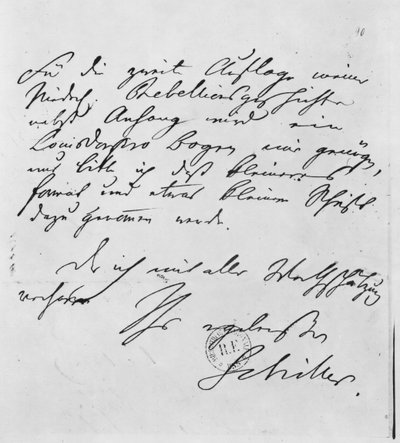 10
Für die zweite Auflage meiner
Niederl. Rebellionsgeschichte
nebst Anhang wird ein
Louisdor pro Bogen mir genügen,
nur bitte ich daß kleineres
Format und etwas kleinere Schrift
dazu genommen werde.
Der ich mit aller Werthschätzung
verharre
Ihr ergebenster
Schiller.
R.F.